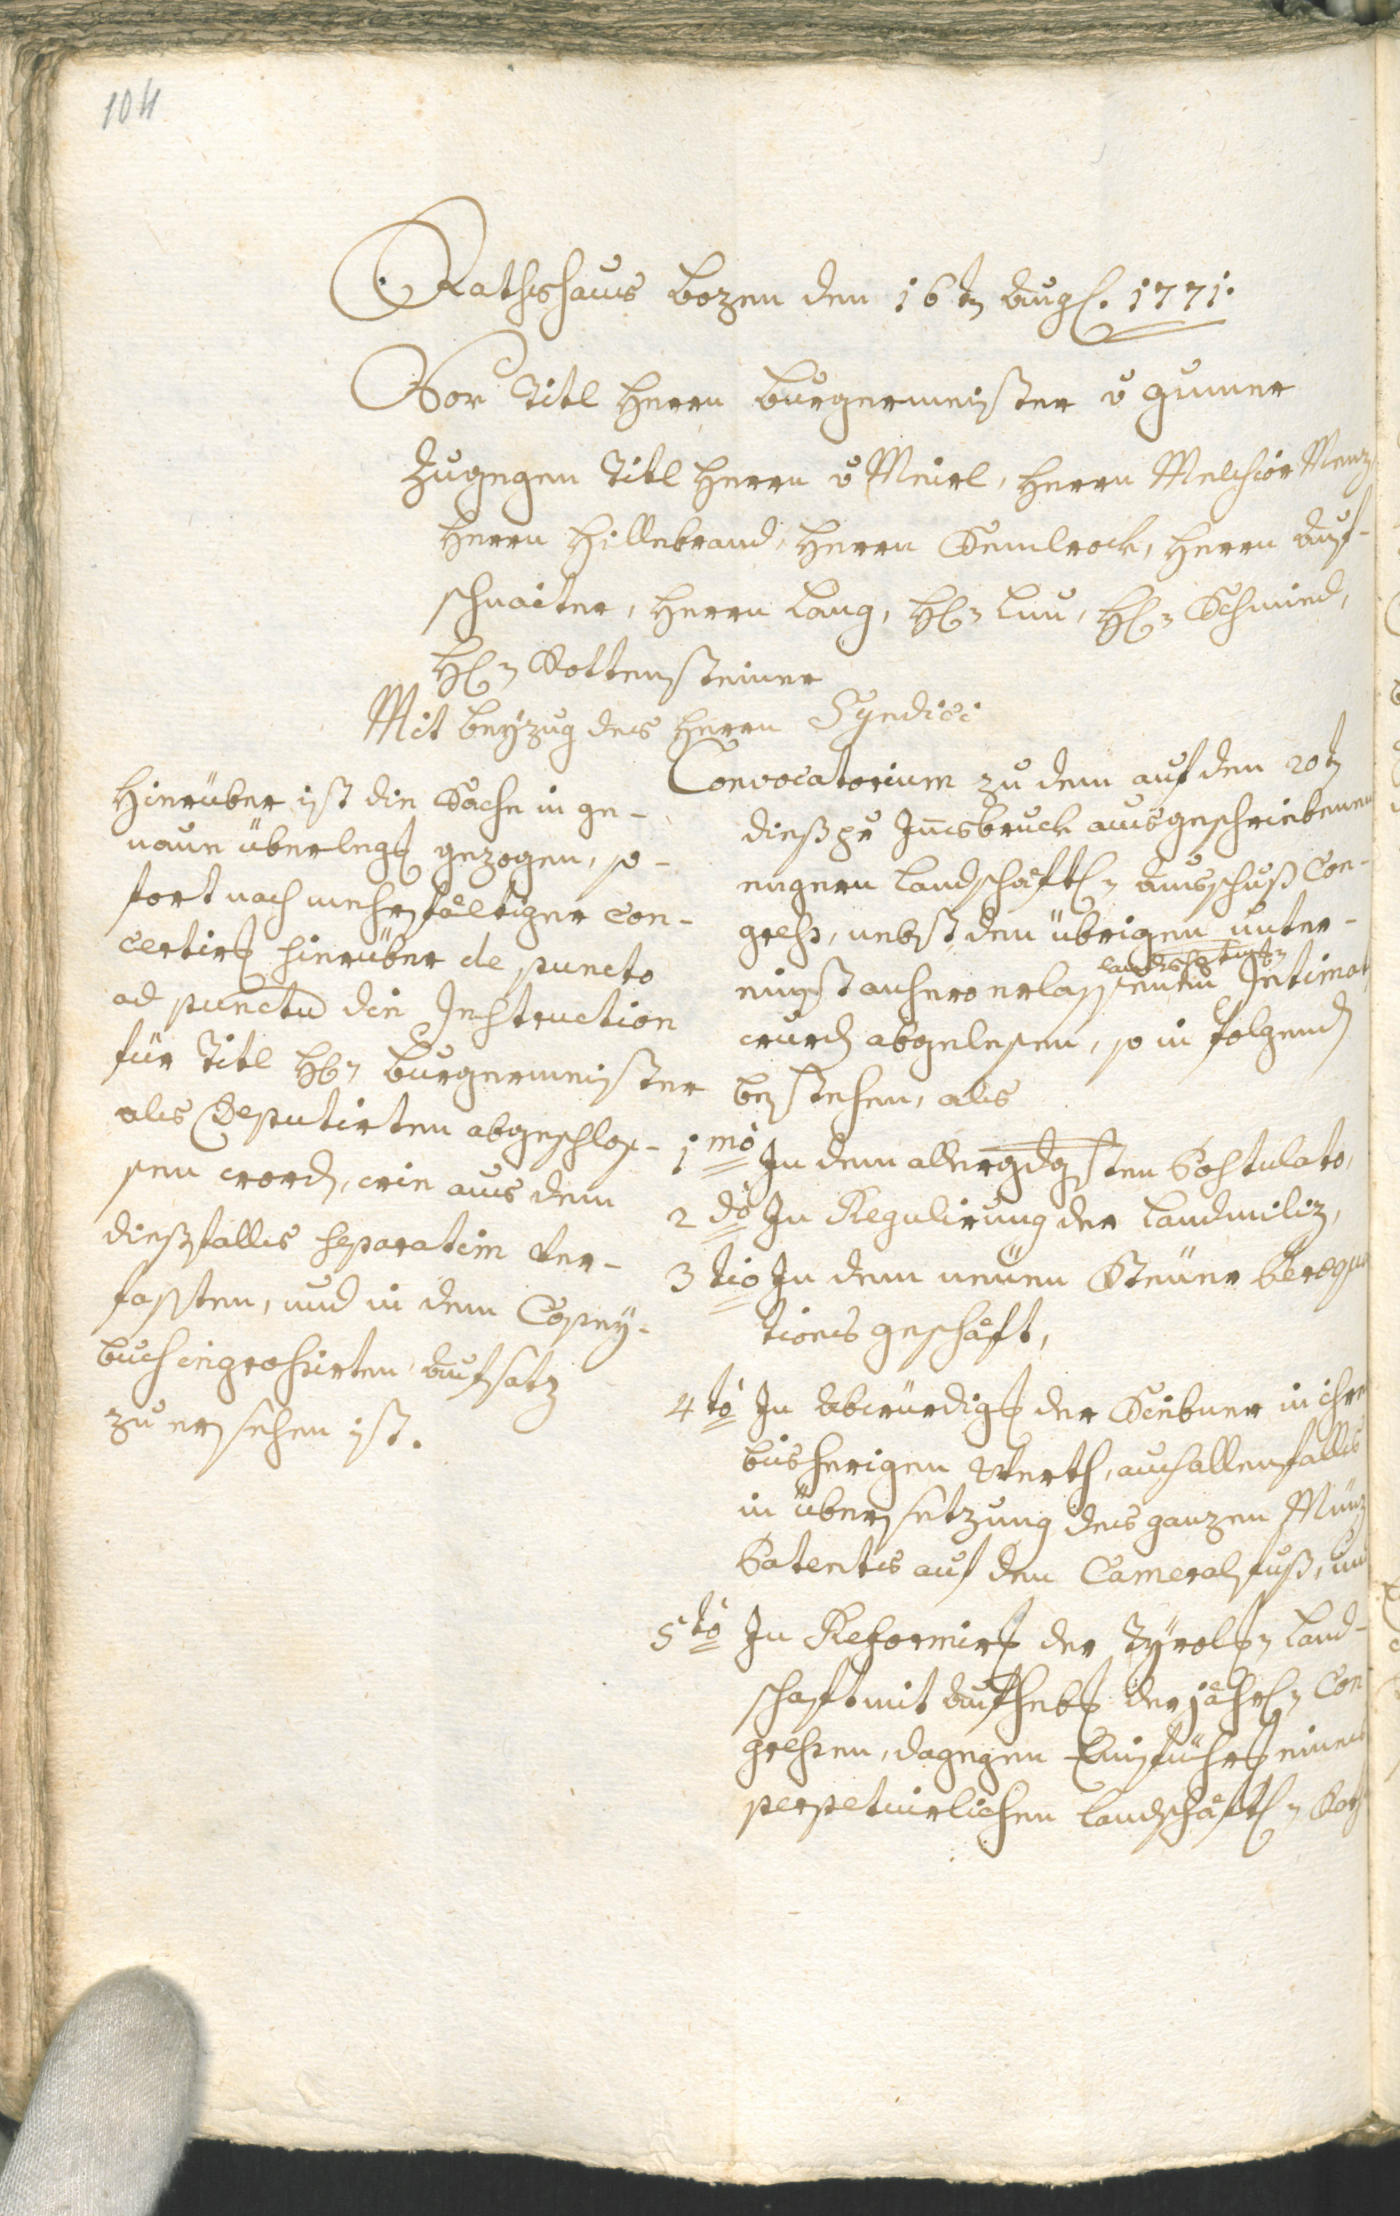 104
Rathshaus Bozen den 16t Aug. 1771.
Vor Titl Herrn Burgermeister v Gumer
Zugegen Titl Herrn v Meirl, Herrn Melchior Menz
Herrn Hillebrand, Herrn Semlrock, Herrn Auf-
schnaiter, Herrn Lang, Hl Luu, Hl Schmied,
Hl Kottensteiner
Mit beyzug des Herrn Syndici
Convocatorium zu dem auf den 20t
dieß zu Insbruck ausgeschriebenen
engern Landschäftl Ausschuß Con-
gress, nebst den übrigen unter-
einst anhero erlassenen Intimat
wurd abgelesen, so in folgend
bestehen, als
1mo In dem allergdgsten Postulato,
2do In Regulirung der Landmiliz,
3tio In dem neuen Steuer Peræqua
tions geschäft,
4to In Abwürdigg der Siebner in ihre
bisherigen Werth, auch allenfalls
in übersetzung des ganzen Münz
Patents auf den Cameral fuß, und
5to In Reformirg der Tyrolln Land-
schaft mit Aufhebg der jährl Con
gressen, dagegen Einführg eines
perpetuirlichen Landschäftl
Hierüber ist die Sache in ge-
naue überlegg gezogen, so-
fort nach mehrfältiger Con-
certirg hierüber de puncto
ad punctu die Instruction
für Titl Hl Burgermeister
als Deputirten abgeschlos-
sen word, wie aus dem
dießfalls separatim ver-
fassten, und in dem Copey-
buch ingrossirten Aufsatz
zu ersehen ist.